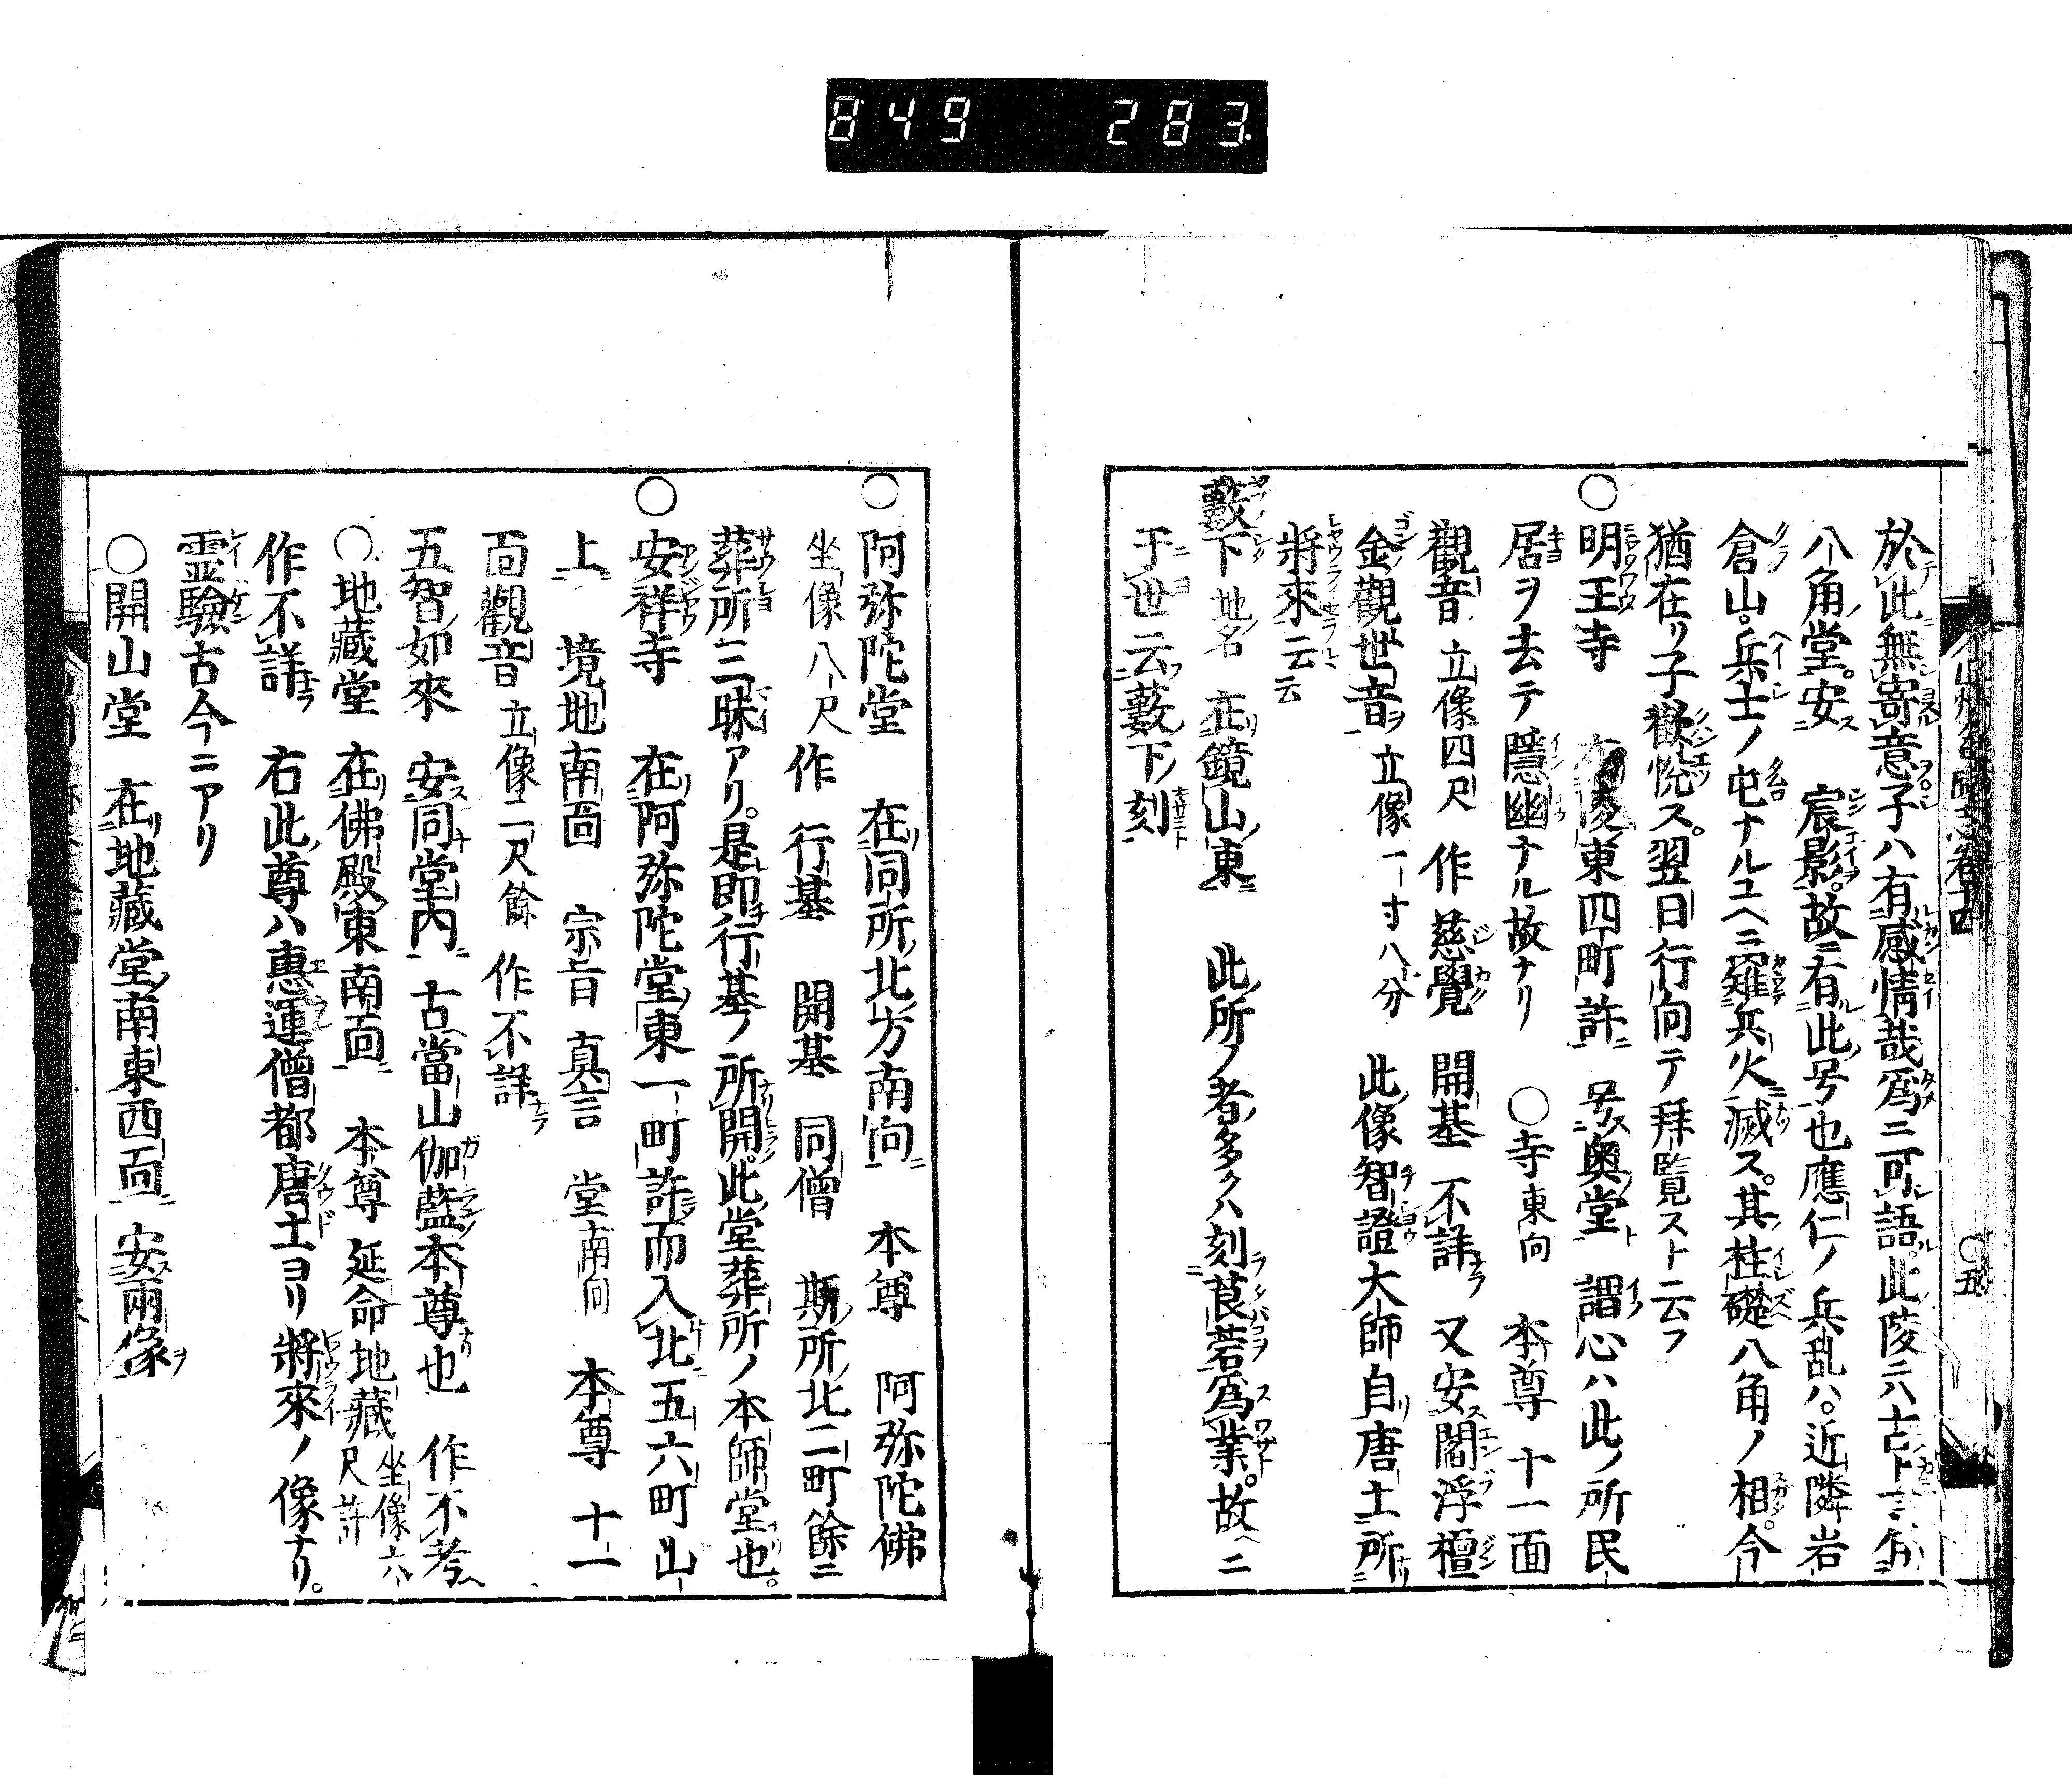 849 283
於此無寄意子ハ有感情哉為ニ可語此陵ニハ古ト
八角堂。安 宸影。故ニ有此号也應仁ノ兵乱ハ。近隣岩
倉山。兵士ノ屯ナルユヘニ羅兵火滅ス。其柱礎八角ノ相。今
猶在リ予歡悦ス。翌日行向テ拜覧スト云フ
○明王寺 陵東四町許 号奥堂 謂心ハ此ノ所民
居ヲ去テ隱幽ナル故ナリ ○寺東向 本尊 十一面
觀音 立像四尺 作 慈覺 開基 不詳 又安閻浮檀
金觀世音 立像一寸八分 此像智證大師自唐土所
將來云云
藪下 地名 在鏡山東 此所ノ者多クハ刻莨若為業。故ニ
于世云藪下刻
○阿弥陀堂 在同所北方南向 本尊 阿弥陀佛
坐像八尺 作 行基 開基 同僧 斯所北二町餘ニ
葬所三昧アリ。是即行基ノ所開。此堂葬所ノ本師堂也。
○安祥寺 在阿弥陀堂東一町許而入北五六町山
上 境地南面 宗旨 真言 堂南向 本尊 十一
面觀音 立像二尺餘 作不詳
五智如來 安同堂内 古當山伽藍本尊也 作不考
○地藏堂 在佛殿東南面 本尊 延命地藏 坐像六尺許
作不詳 右此尊ハ惠運僧都唐土ヨリ將來ノ像ナリ。
霊驗古今ニアリ
○開山堂 在地藏堂南東西面 安兩像